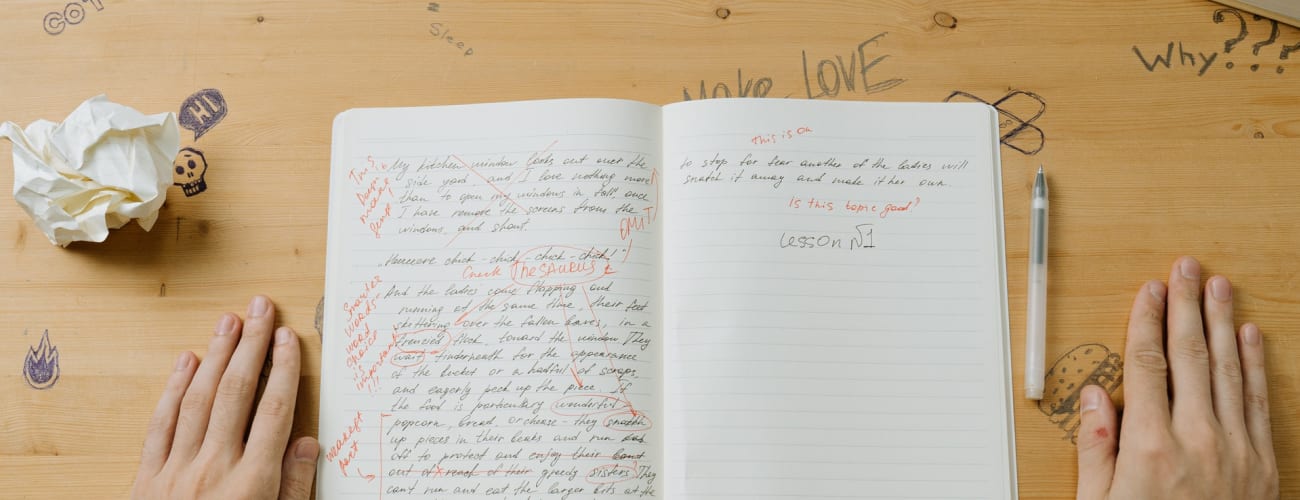 COT
=
Sleep
HI
Make LOVE
Why???
This
My kitchen window looks out over the
side yard, and I love nothing more
than to open my windows in fall, once
I have remove the screens from the
windows, and shout.
OMIT
"Heeeere chick-chick-chick-chick!"
Check THESAURUS
And the ladies come flapping and
running at the same time, their feet
skittering over the fallen leaves, in a
frenzied flock, toward the window. They
wait underneath for the appearance
of the bucket or a handful of scraps,
and eagerly peck up the piece. If
the food is particulary wonderful -
popcorn, bread, or cheese - they snatch
up pieces in their beaks and run
off to protect and enjoy their
out of reach of their greedy sisters. They
can't run and eat the larger bits at the
Smarter
words
word
choice
is
important
!!!
weakest
part
this is on
to stop for fear another of the ladies will
snatch it away and make it her own.
Is this topic good?
Lesson №1